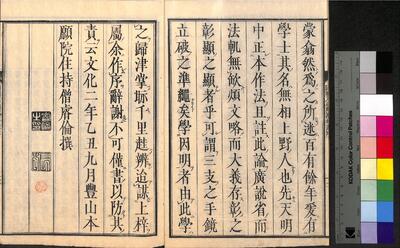 蒙翕然爲之所述百有餘年爰有
學士其名無相上野人也先天明
中正本作法且註此論廣說省而
法軌無欹煩文略而大義存彰之
彰顯之顯者乎可謂三支之手鏡
立破之準繩矣學因明者由此學
之歸津掌眎千里赴辨追謀上梓
屬余作序辭謝不可僅書以防其
責云文化二年乙丑九月豐山本
願院住持僧 倫撰
KODAK Color Control Patches